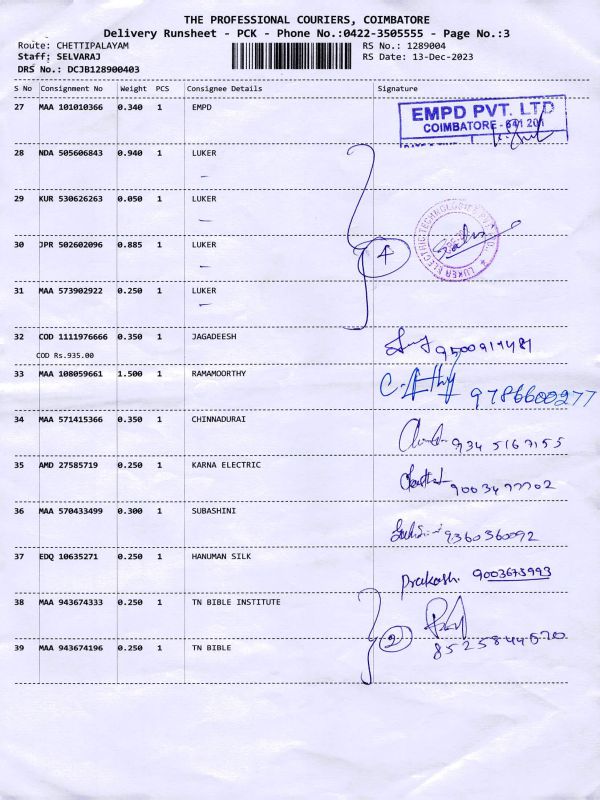 THE PROFESSIONAL COURIERS, COIMBATORE
Delivery Runsheet - PCK - Phone No.:0422-3505555 - Page No.:3
Route: CHETTIPALAYAM RS No.: 1289004
Staff: SELVARAJ RS Date: 13-Dec-2023
DRS No.: DCJB128900403
S No Consignment No Weight PCS Consignee Details Signature
27 MAA 101010366 0.340 1 EMPD
EMPD PVT. LTD
COIMBATORE - 641 201
28 NDA 505606843 0.940 1 LUKER
29 KUR 530626263 0.050 1 LUKER
30 JPR 502602096 0.885 1 LUKER
4
LUKER ELECTRIC TECHNOLOGIES PVT
31 MAA 573902922 0.250 1 LUKER
32 COD 1111976666 0.350 1 JAGADEESH
COD Rs.935.00
33 MAA 108059661 1.500 1 RAMAMOORTHY 9786600277
34 MAA 571415366 0.350 1 CHINNADURAI 9345167155
35 AMD 27585719 0.250 1 KARNA ELECTRIC
36 MAA 570433499 0.300 1 SUBASHINI 9360360092
37 EDQ 10635271 0.250 1 HANUMAN SILK Prakash 9003673993
38 MAA 943674333 0.250 1 TN BIBLE INSTITUTE
2 8525844520
39 MAA 943674196 0.250 1 TN BIBLE